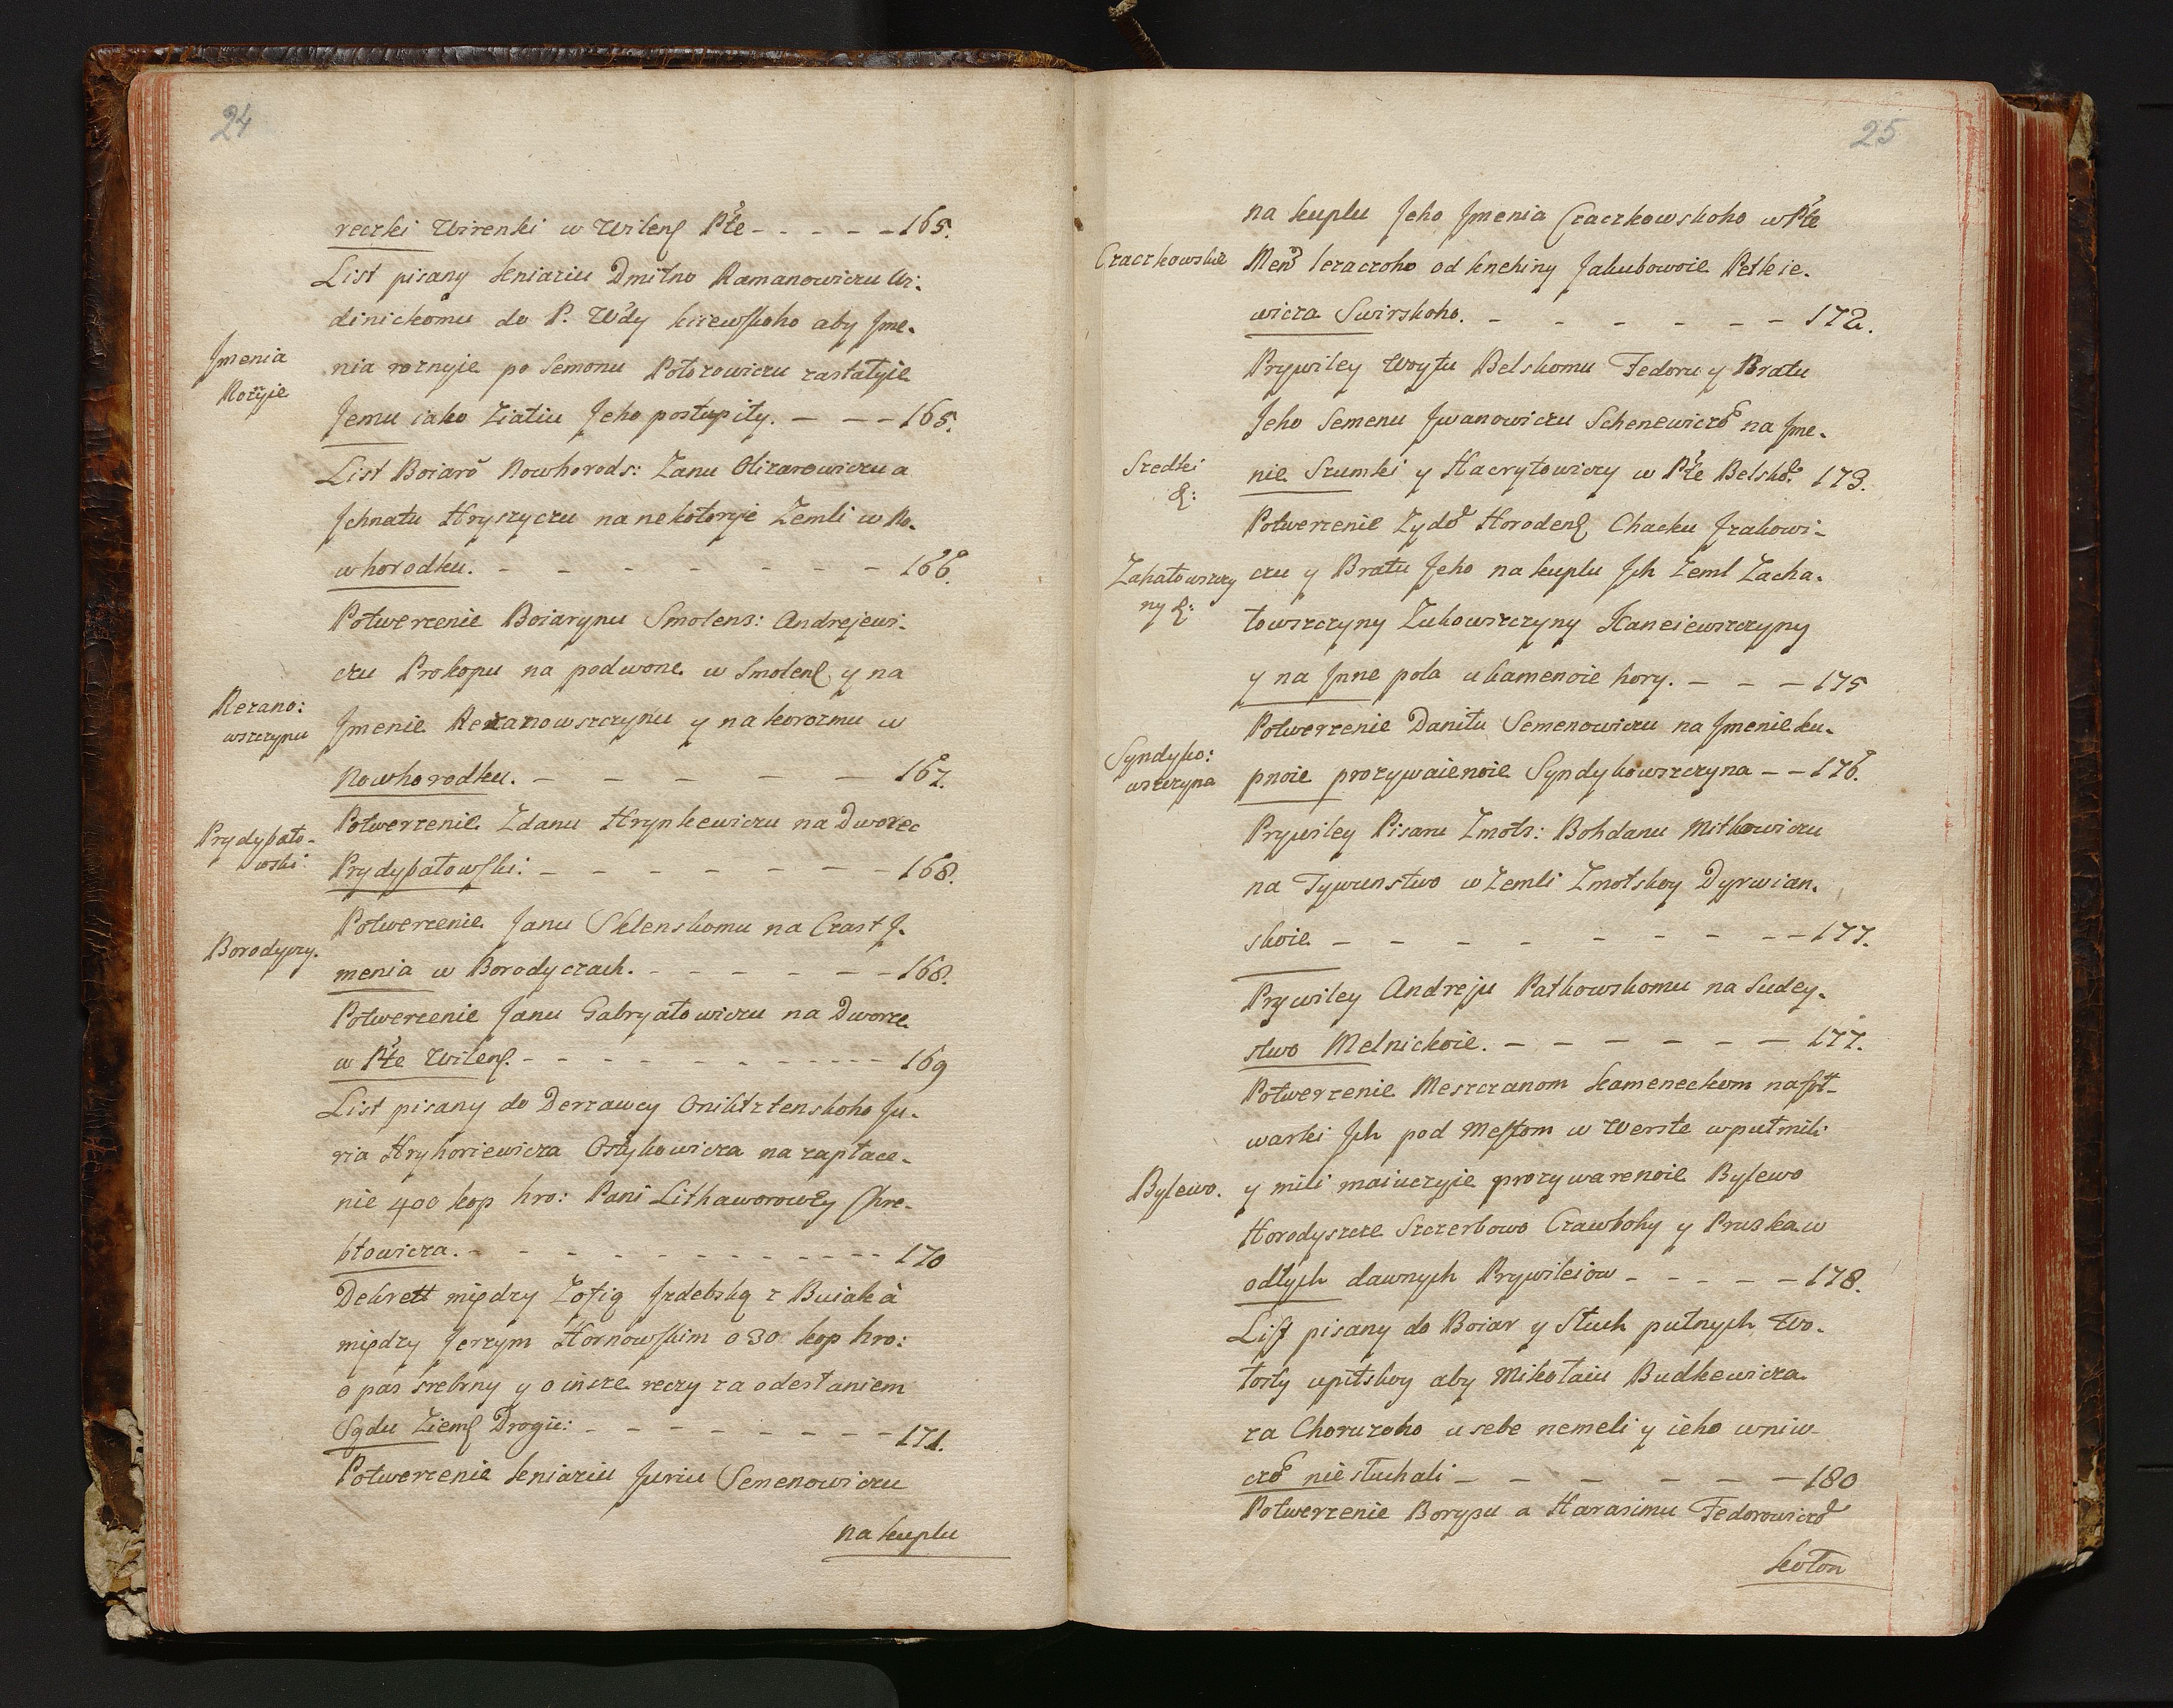 24
reczki Wirenki w Wilenſ Pte - - - - - 165.
List pisany kniaziu Dmitno Ramanowiczu Wi-
dinickomu do P. Wdy kiiewſkoho aby Jme-
Jmenia
Rożyie
nia roznyie po Semonu Połozowiczu zastałyie
Jemu iako Ziatiu Jeho postupiły. - - - 165.
List Boiaro Nowhorods: Zanu Olizarowiczu a
Jchnatu Hryszyczu na nekotoryie Zemli w No-
whorodku. - - - - - - - - 166.
Potwerzenie Boiarynu Smolens: Andrejewi-
czu Prokopu na podwone w Smolenſ y na
Rezano:
wszczynu
Jmenie Rezanowszczynu y na korozmu w
Nowhorodku. - - - - - - 167.
Potwerzenie Zdanu Hrynkewiczu na Dworec
Prydybało-
wski:
Prydybałowſki: - - - - - - - 168.
Potwerzenie Janu Sklenskomu na Czast J-
Borodyczy.
menia w Borodyczach. - - - - - - 168.
Potwerzenie Janu Gabryałowiczu na Dworze
w Pte Wilenſ. - - - - - - - - - - 169
List pisany do Derzawcy Oniksztenskoho Ju-
ria Hryhoriewicza Ostykowicza na zapłace-
nie 400 kop hro: Pani Lithaworowey Chre-
btowicza. - - - - - - - - - - - - 170
Dekrett między Zofią Jzdebską z Buiaka
między Jerzym Hornowſkim o 30 kop hro:
o pas srebrny y o insze reczy za odesłaniem
Sądu Ziemſ Drogic: - - - - - - - - 171.
Potwerzenie kniaziu Juriu Semenowiczu
na kuplu
25
na kuplu Jeho Jmenia Czaczkowskoho w Pte
Czaczkowskie
Men lezaczoho od knehiny Jakubowoie Petkie-
wicza Swirskoho. - - - - - - - 172.
Prywiley Woytu Belskomu Fedoru y Bratu
Jeho Semenu Jwanowiczu Schenewiczo na Jme-
Szedki
&:
nie Szumki y Hacrytowiczy w Pte Belsko. 173.
Potwerzenie Zydo Horodenſ Chacku Jzakowi-
Zahałowszczy
ny &:
czu y Bratu Jeho na kuplu Jch Zeml Zacha-
towszczyny Zukowszczyny Haneiewszczyny
y na Jnne pola u kamenoie hory. - - - 175
Potwerzenie Daniłu Semenowiczu na Jmenie ku-
Syndyko:
wszczyna
pnoie prozywaienoie Syndykowszczyna - - 176.
Prywiley Pisaru Zmots: Bohdanu Mitkowiczu
na Tywunstwo w Zemli Zmotskoy Dyrwian-
skoie - - - - - - - - - - 177.
Prywiley Andreju Patkowskomu na Sudey-
stwo Melnickoie. - - - - - - 177.
Potwerzenie Meszczanom kameneckom na fot-
warki Jch pod Meſtom w Werste w put mili
Byſewo.
y mili maiuczyie prozywarenoie Byſewo
Horodyszcze Szczerbowo Czawboky y Pruska w
odtych dawnych Prywileiow - - - - - 178.
Liſt pisany do Boiar y Stuh putnych Wo-
tosty upitskoy aby Mikołaiu Budkewicza
za Choruzoho u sebe nemeli y ieho w niw-
czo niestuchali - - - - - - - 180
Potwerzenie Borysu a Harasimu Fedorowiczo
koton